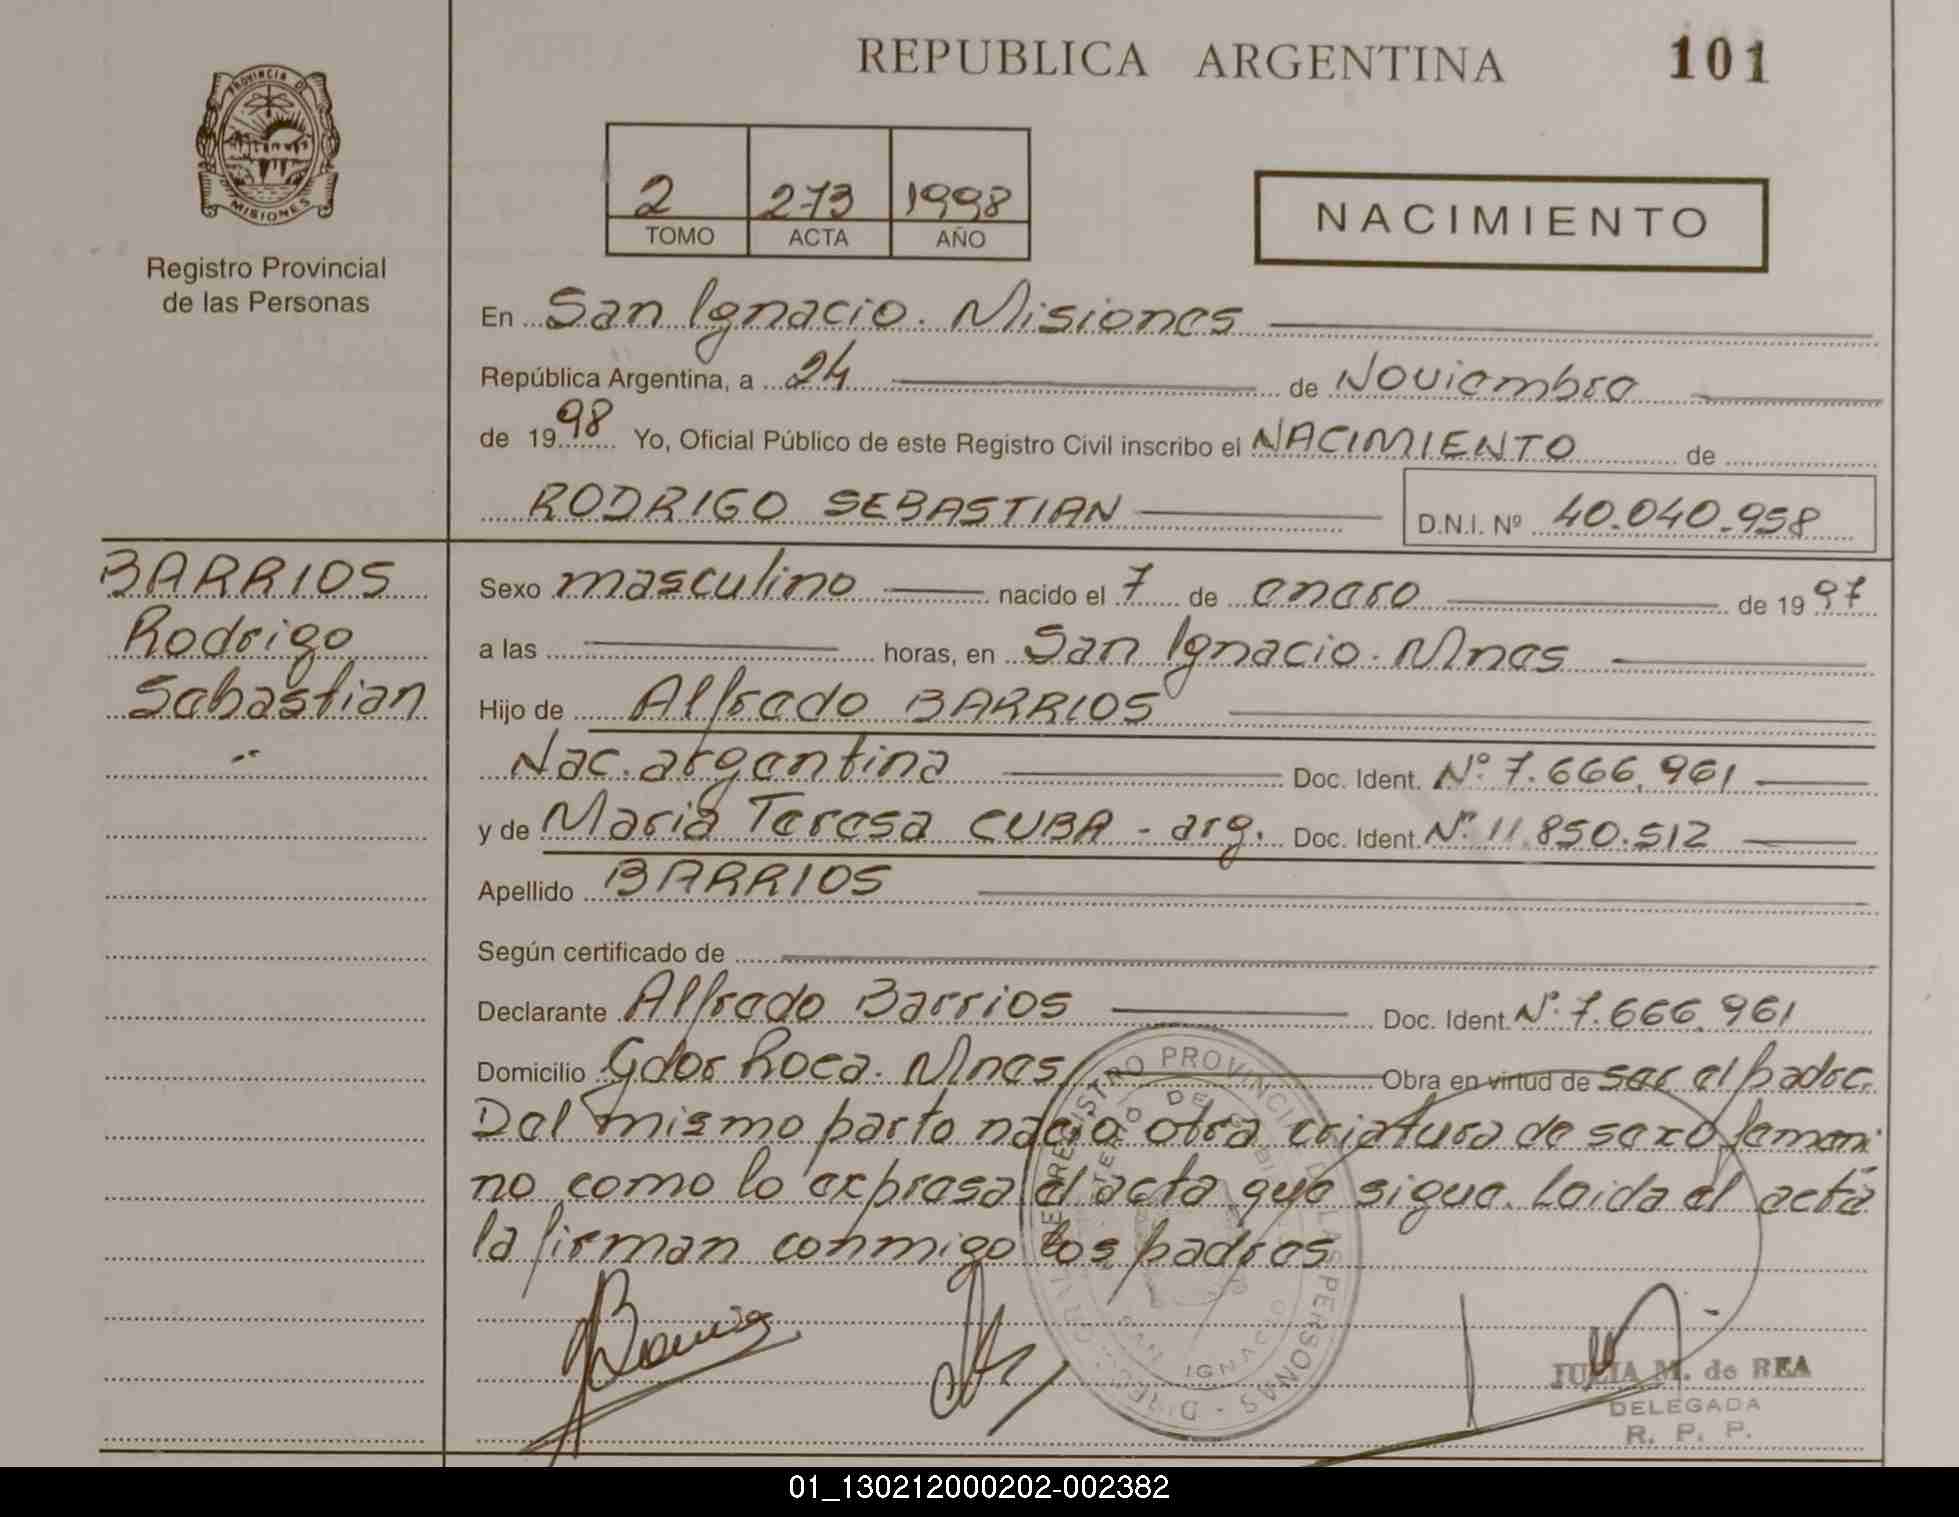 REPUBLICA ARGENTINA
101
PROVINCIA DE
MISIONES
Registro Provincial
de las Personas
2 273 1998
TOMO ACTA AÑO
NACIMIENTO
En San Ignacio. Misiones
República Argentina, a 24 de Noviembre
de 1998 Yo, Oficial Público de este Registro Civil inscribo el NACIMIENTO de
RODRIGO SEBASTIAN D.N.I. Nº 40.040.958
BARRIOS
Rodrigo
Sebastian
Sexo masculino nacido el 7 de enero de 1997
a las horas, en San Ignacio. Mnes
Hijo de Alfredo BARRIOS
Nac. argentina Doc. Ident. Nº 7.666.961
y de Maria Teresa CUBA - arg. Doc. Ident. Nº 11.850.512
Apellido BARRIOS
Según certificado de
Declarante Alfredo Barrios Doc. Ident. Nº 7.666.961
Domicilio Gdor Roca. Mnes Obra en virtud de ser el padre.
Del mismo parto nació otra criatura de sexo femeni
no como lo expresa el acta que sigue. Leida el acta
la firman conmigo los padres
REGISTRO PROVINCIAL DE LAS PERSONAS
SAN IGNACIO
JULIA M. de REA
DELEGADA
R. P. P.
01_130212000202-002382